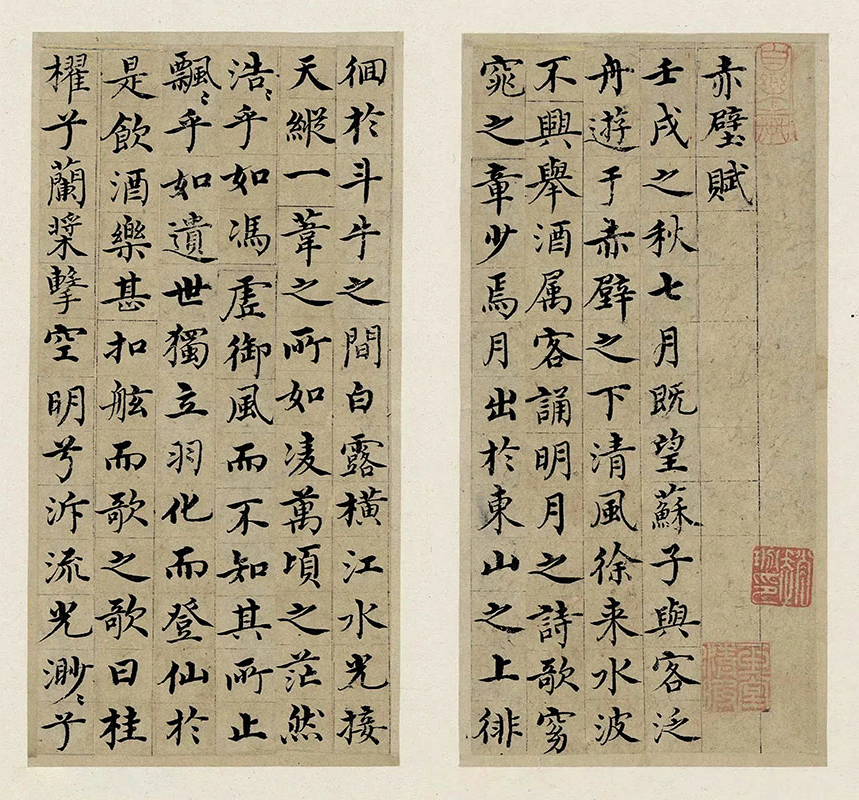 赤壁賦
壬戌之秋七月既望蘇子與客泛
舟遊于赤壁之下清風徐来水波
不興舉酒属客誦明月之詩歌窈
窕之章少焉月出於東山之上徘
徊於斗牛之間白露橫江水光接
天縱一葦之所如凌萬頃之茫然
浩〻乎如馮虛御風而不知其所止
飄〻乎如遺世獨立羽化而登仙於
是飲酒樂甚扣舷而歌之歌曰桂
櫂兮蘭槳擊空明兮泝流光渺〻兮